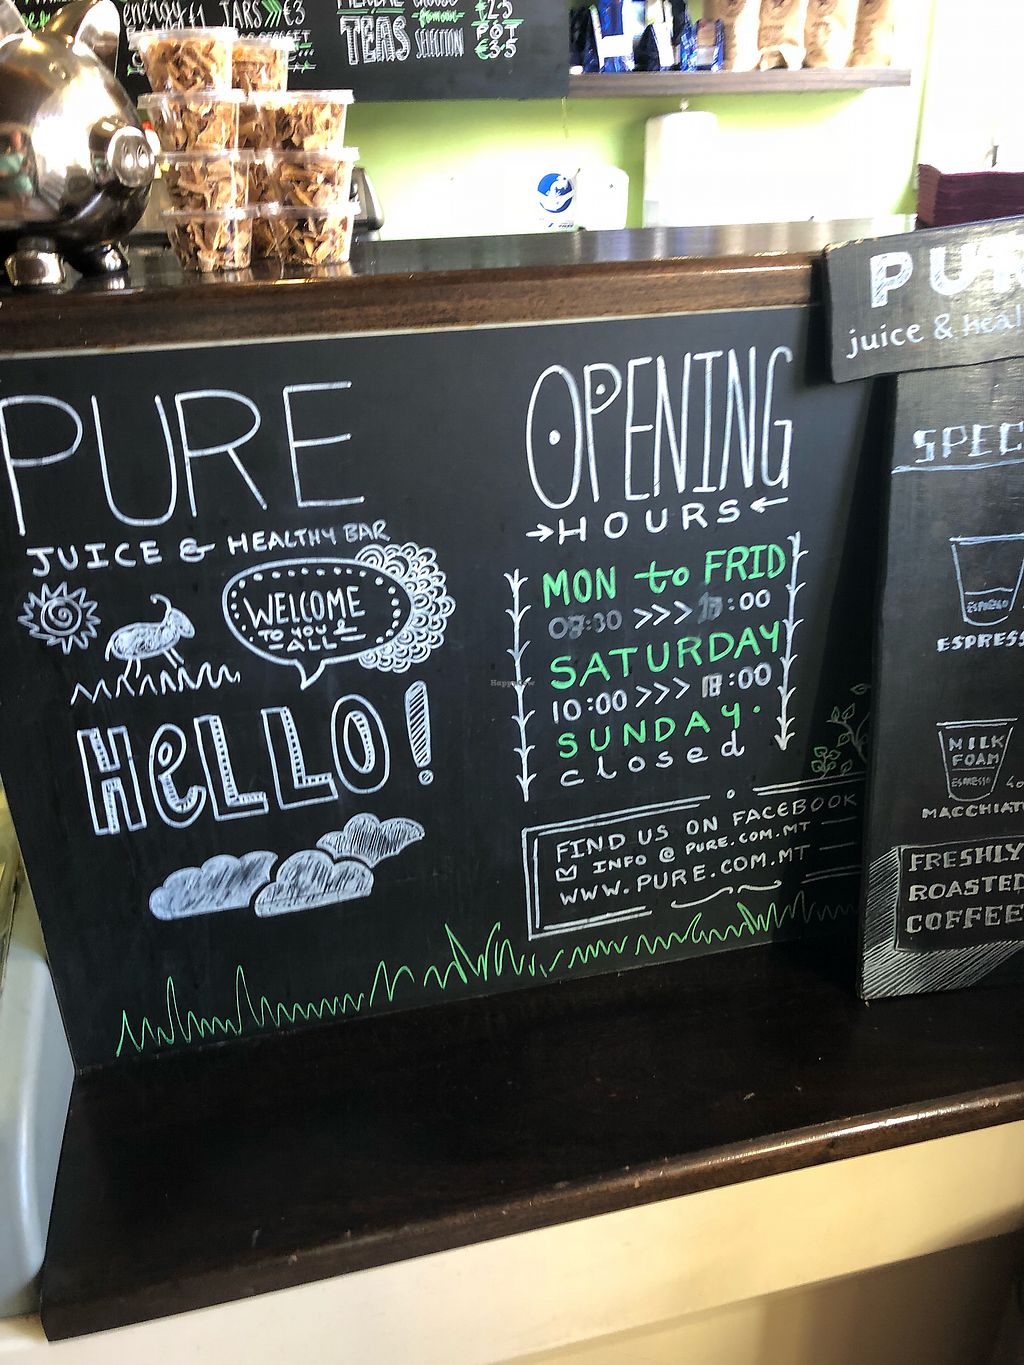 energy
JARS >>> €3
TEAS SELECTION
POT
€3.5
PURE
JUICE & HEALTHY BAR
WELCOME
TO YOU
ALL
HELLO!
OPENING
HOURS
MON to FRID
>>> :00
SATURDAY
10:00 >>> 18:00
SUNDAY
closed
FIND US ON FACEBOOK
INFO @ PURE.COM.MT
WWW.PURE.COM.MT
PUR
juice & heal
SPEC
ESPRESSO
ESPRESS
MILK
FOAM
ESPRESSO
MACCHIAT
FRESHLY
ROASTED
COFFEE